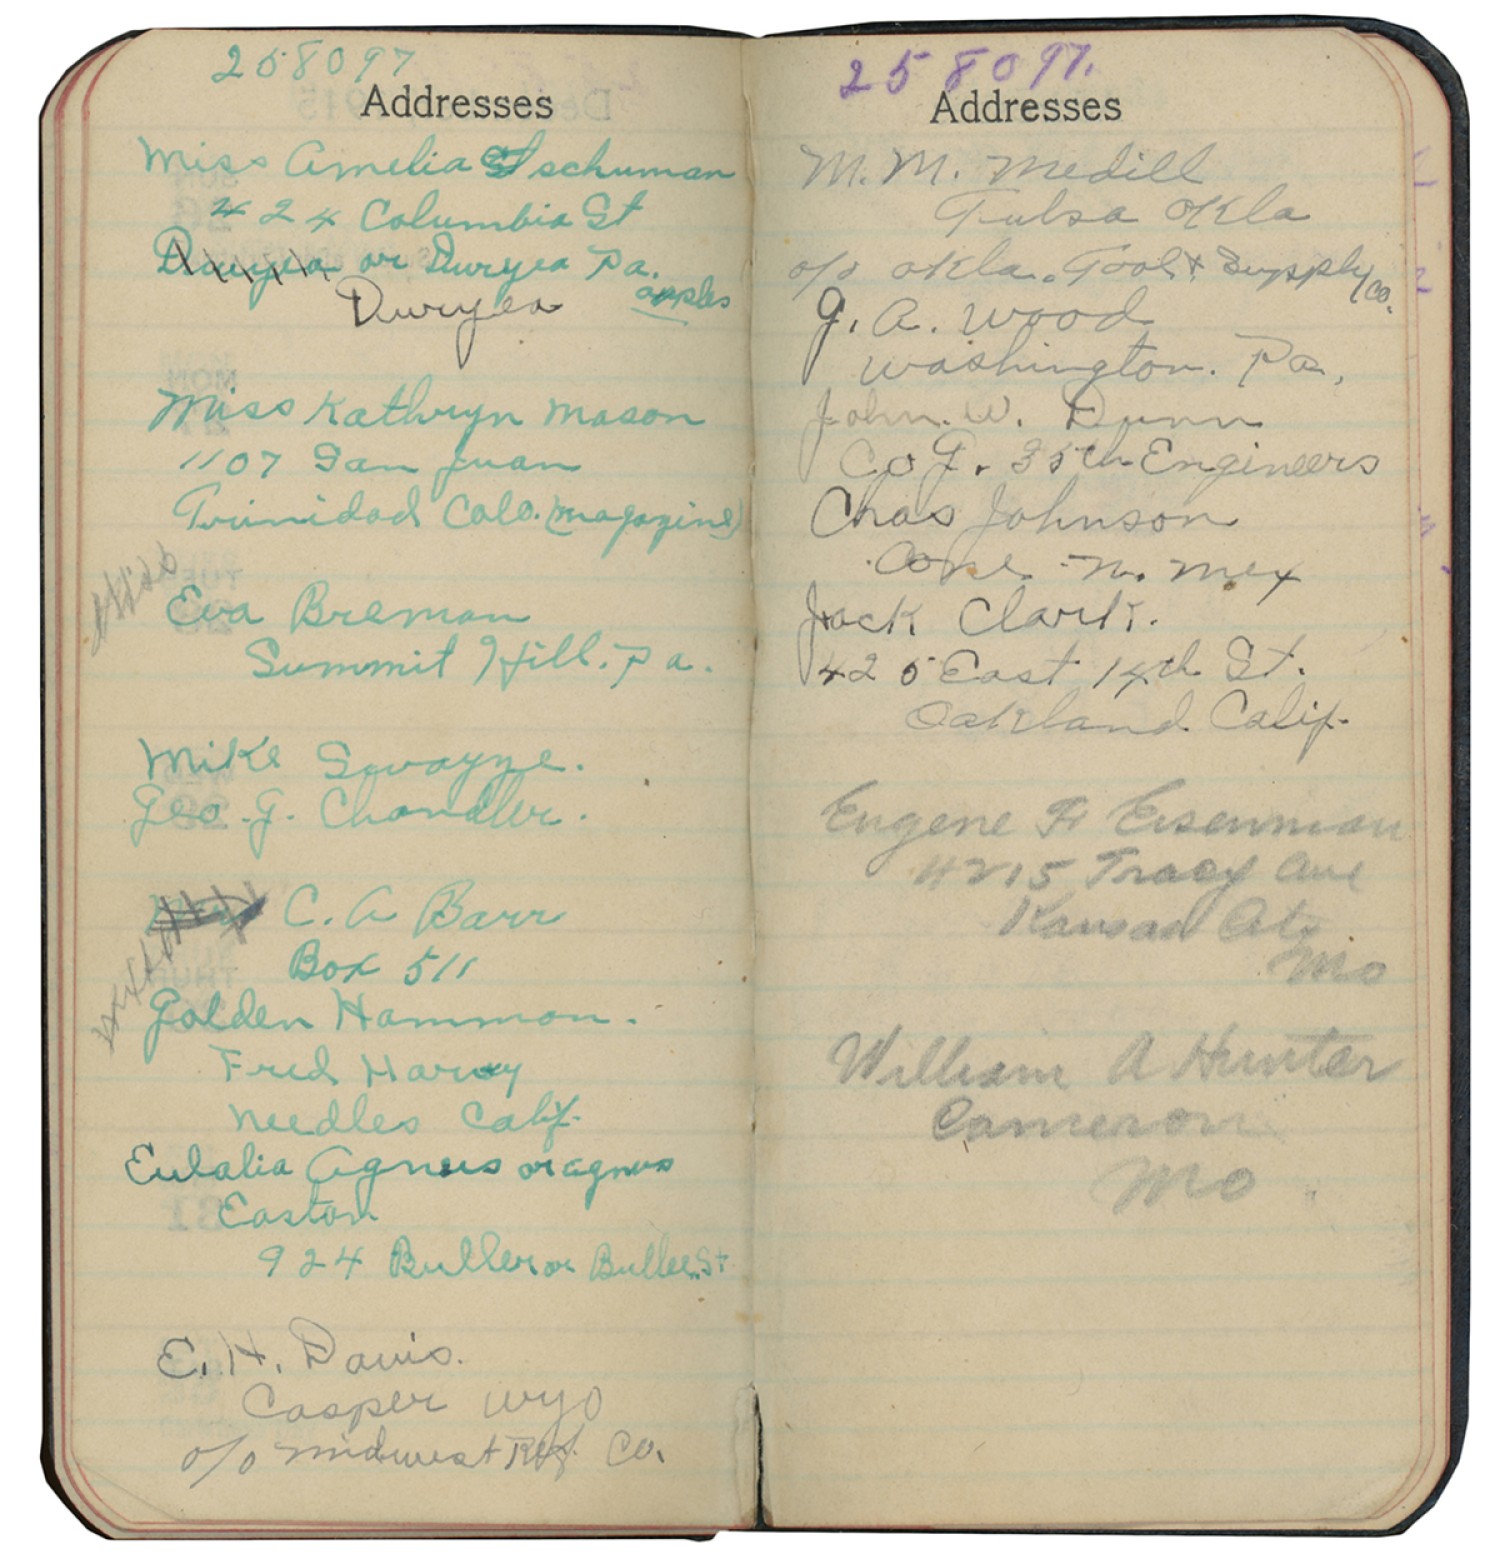 258097
Addresses
Miss Amelia Tschuman
424 Columbia St
Duryea or Duryea Pa.
apples
Duryea
Miss Kathryn Mason
1107 San Juan
Trinidad Colo. (magazine)
Eva Breman
Summit Hill. Pa.
Mike Swayze.
Geo. G. Chandler.
C. A Barr
Box 511
Golden Hammon.
Fred Harvey
Needles Calif.
Eulalia Agneus or agnus
Easton
924 Buller or Bullee St
E. H. Davis.
Casper Wyo
c/o Midwest Ref. Co.
258097.
Addresses
M. M. Medill
Tulsa Okla
c/o Okla. Tool & Supply Co.
J. A. Wood
Washington. Pa.
John. W. Dunn
Co F. 35th Engineers
Chas Johnson
Cone N. Mex
Jack Clark.
425 East 14th St.
Oakland Calif.
Eugene F. Eisenman
4215 Tracy Ave
Kansas City
Mo
William A Hunter
Cameron
Mo